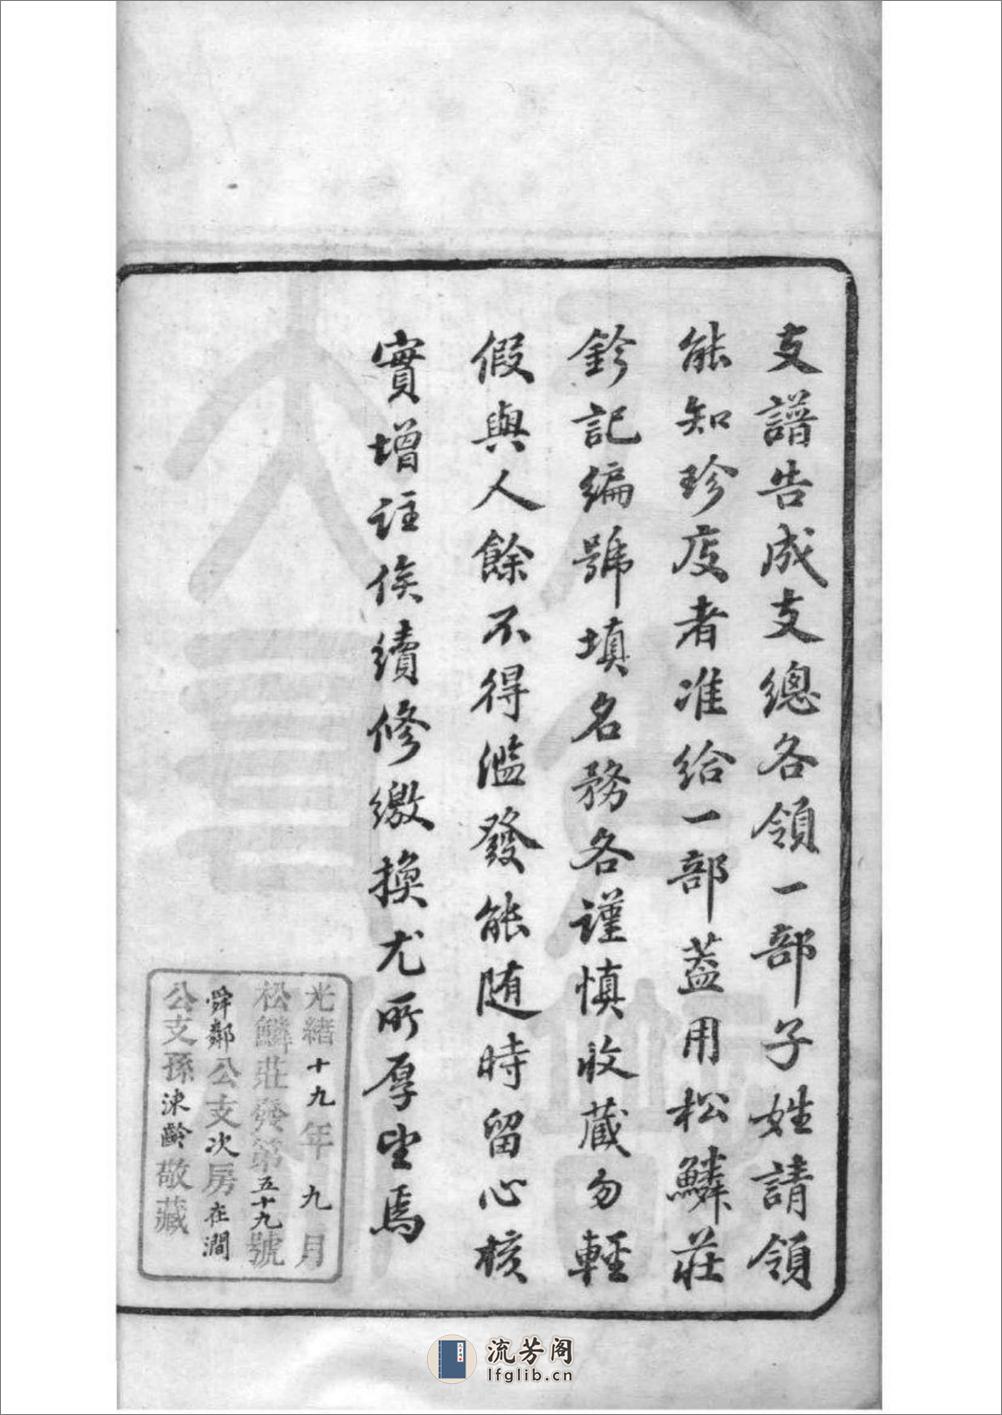 支譜告成支總各領一部子姓請領
能知珍庋者准給一部蓋用松鱗莊
鈐記編號填名務各謹慎收藏勿輕
假與人餘不得濫發能随時留心核
實增註俟續修繳換尤所厚望焉
光緒十九年九月
松鱗莊發第五十九號
舜鄰公支次房在澗
公支孫涑齡敬藏
流芳阁
lfglib.cn